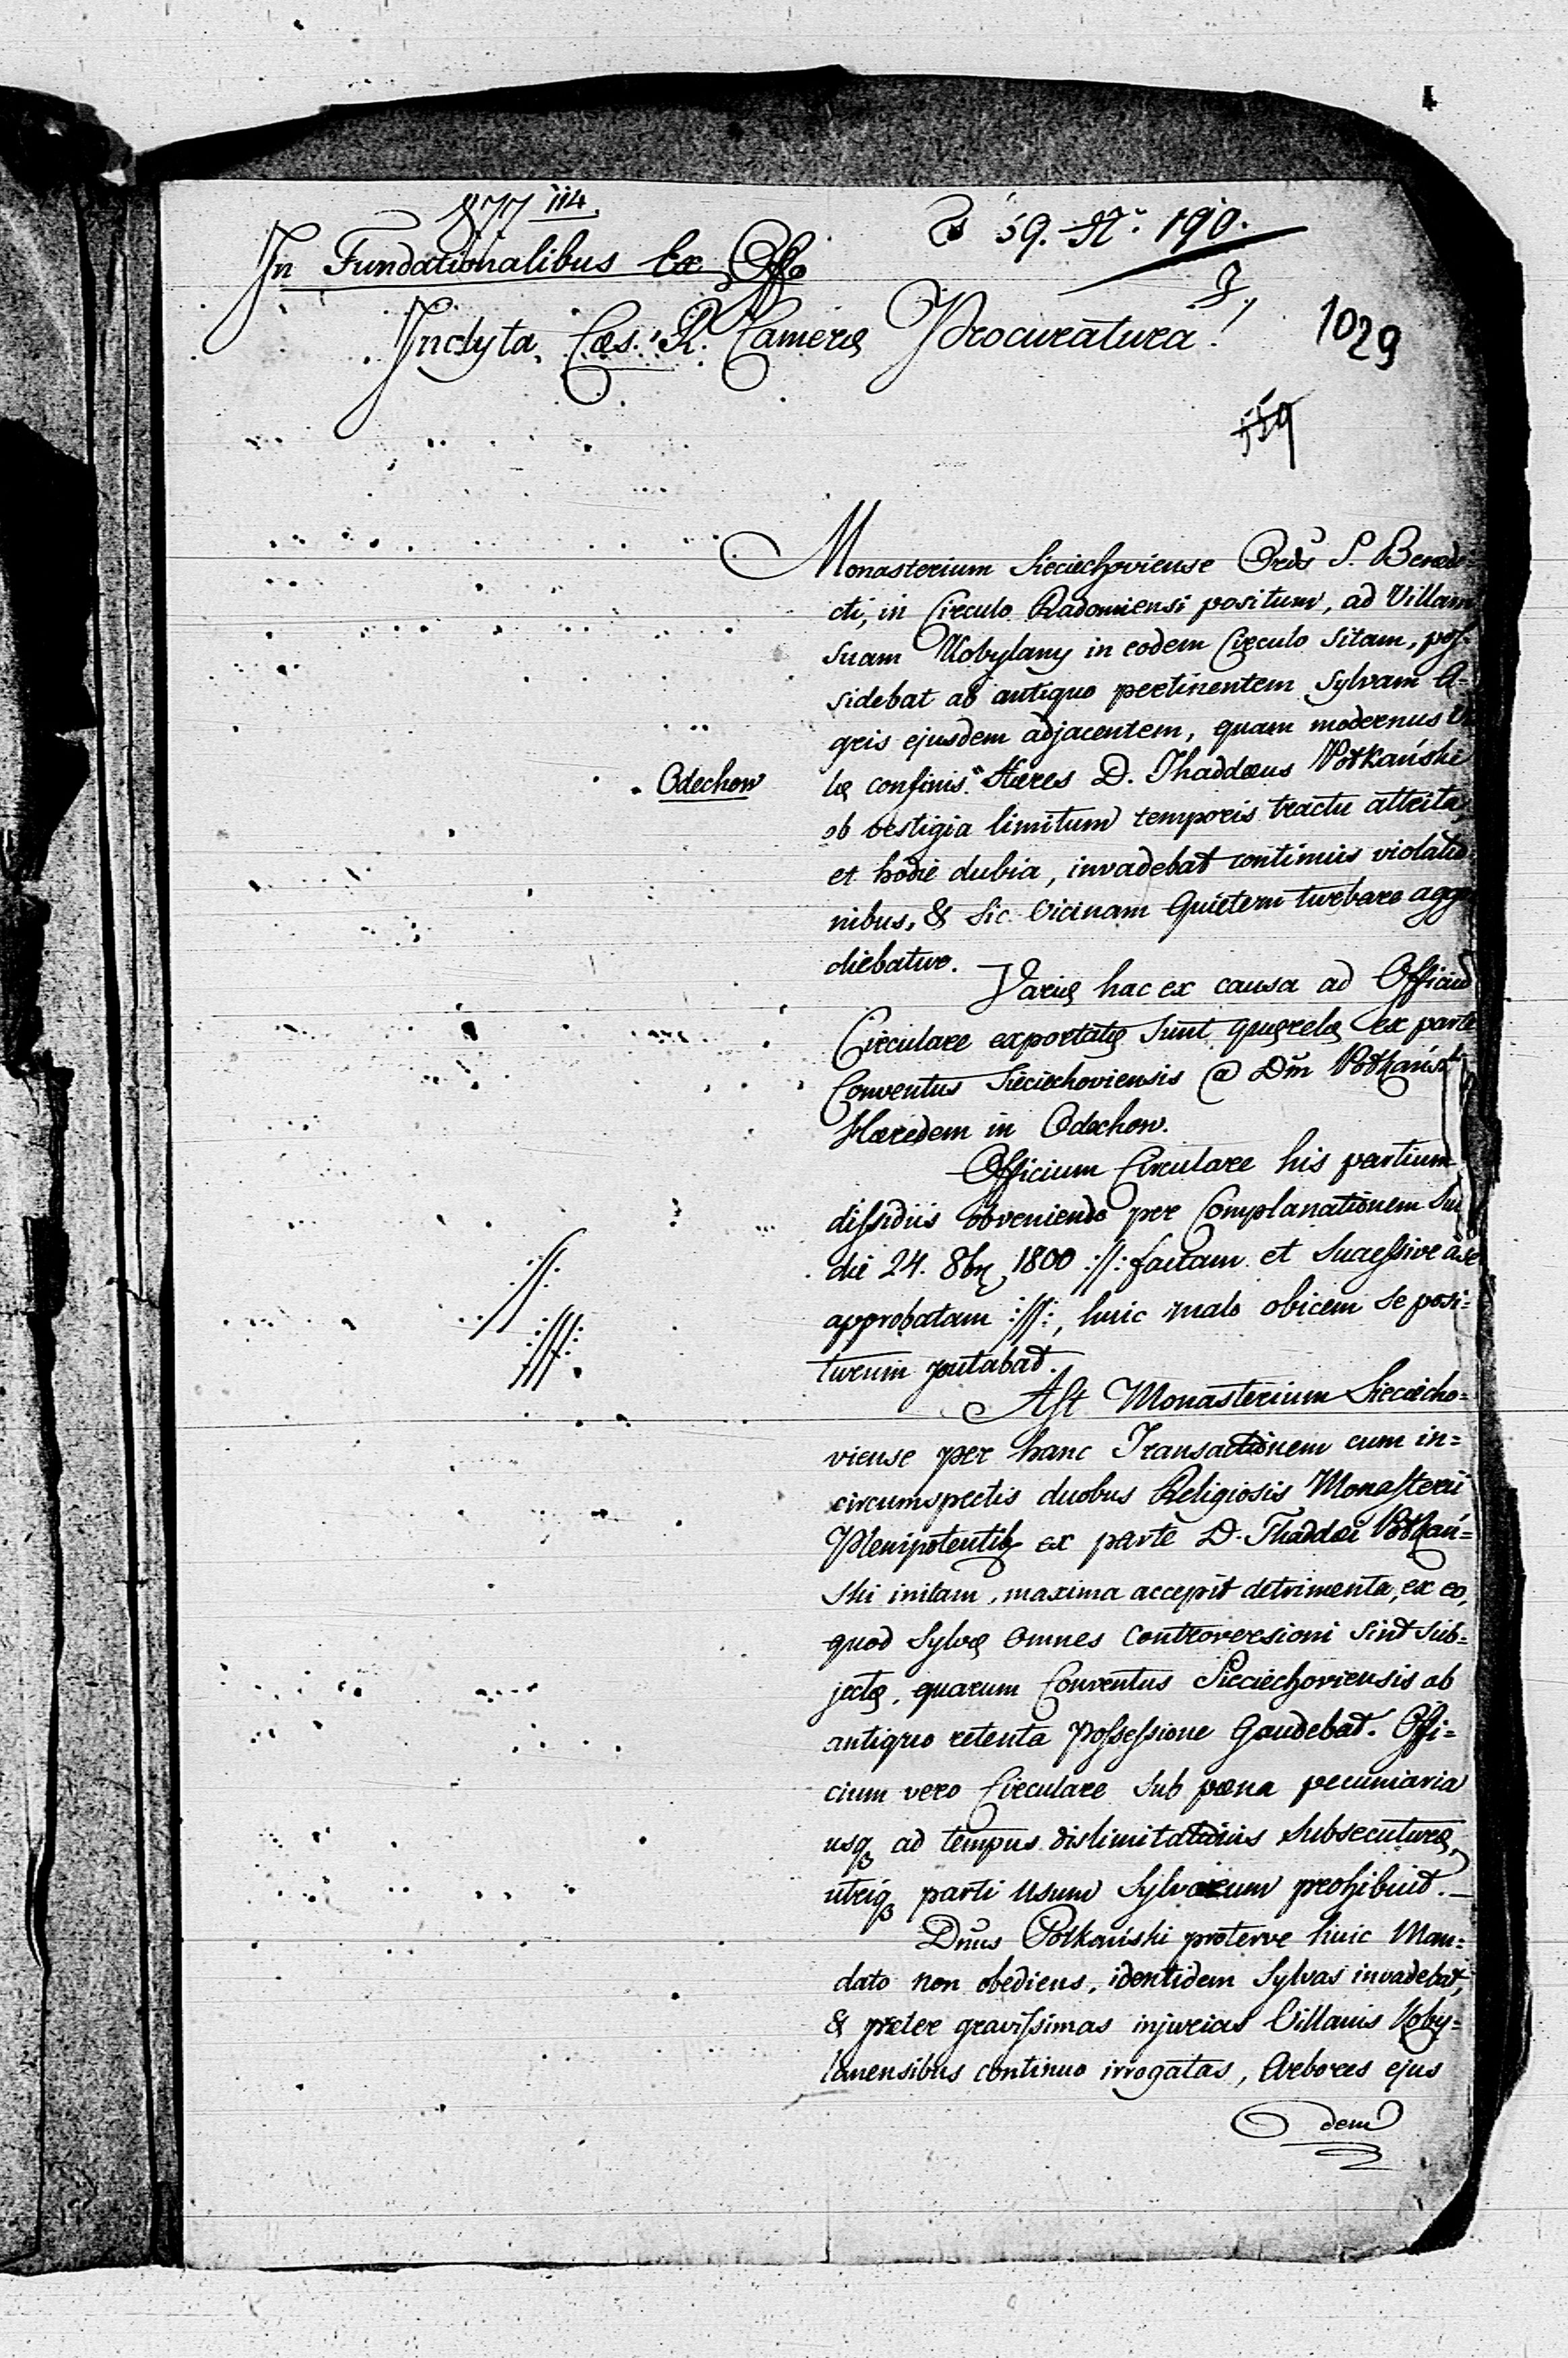 877 114.
59. N. 190.
In Fundationalibus Ex Offo
Inclyta Cæs. R. Cameræ Procuratura!
1029
Monasterium Sieciechoviense Ords S. Benedi-
cti, in Circulo Radomiensi positum, ad Villam
suam Kobylany in eodem Circulo sitam, pos-
sidebat ab antiquo pertinentem Sylvam A-
gris ejusdem adjacentem, quam modernus Vil
Odechow
læ confinis * Hæres D. Thaddæus Potkański
ob vestigia limitum temporis tractu attrita,
et hodie dubia, invadebat continuis violatio-
nibus, & sic Vicinam Quietem turbare aggre
diebatur.
Variæ hac ex causa ad Officium
Circulare exportatæ sunt quærelæ ex parte
Conventus Sieciechoviensis @ Dm Potkański
Hæredem in Odechow.
Officium Circulare his partium
dissidiis obveniendo per Complanationem sub
die 24. 8br 1800 :/: factam et successive a se
approbatam ://:, huic malo obicem se posi=
turum putabat.
Ast Monasterium Sieciecho=
viense per hanc Transactionem cum in=
circumspectis duobus Religiosis Monasterii
Plenipotentibq ex parte D. Thaddæi Potkań=
ski initam, maxima accepit detrimenta, ex eo,
quod Sylvæ omnes Controversioni sint sub=
jectæ, quarum Conventus Sieciechoviensis ab
antiquo retenta Possessione Gaudebat. Offi=
cium vero Circulare sub pœna pecuniaria
usq ad tempus dislimitationis subsecuturæ,
utriq parti usum Sylvarum prohibuit.—
Dnus Potkański proterve huic Man=
dato non obediens, identidem Sylvas invadebat,
& præter gravissimas injurias Villanis Koby=
lanensibus continuo irrogatas, Arbores ejus
dem